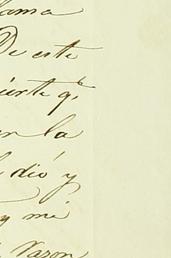 lama
De este
ierte q.e
en la
dió y
y mi
Varon